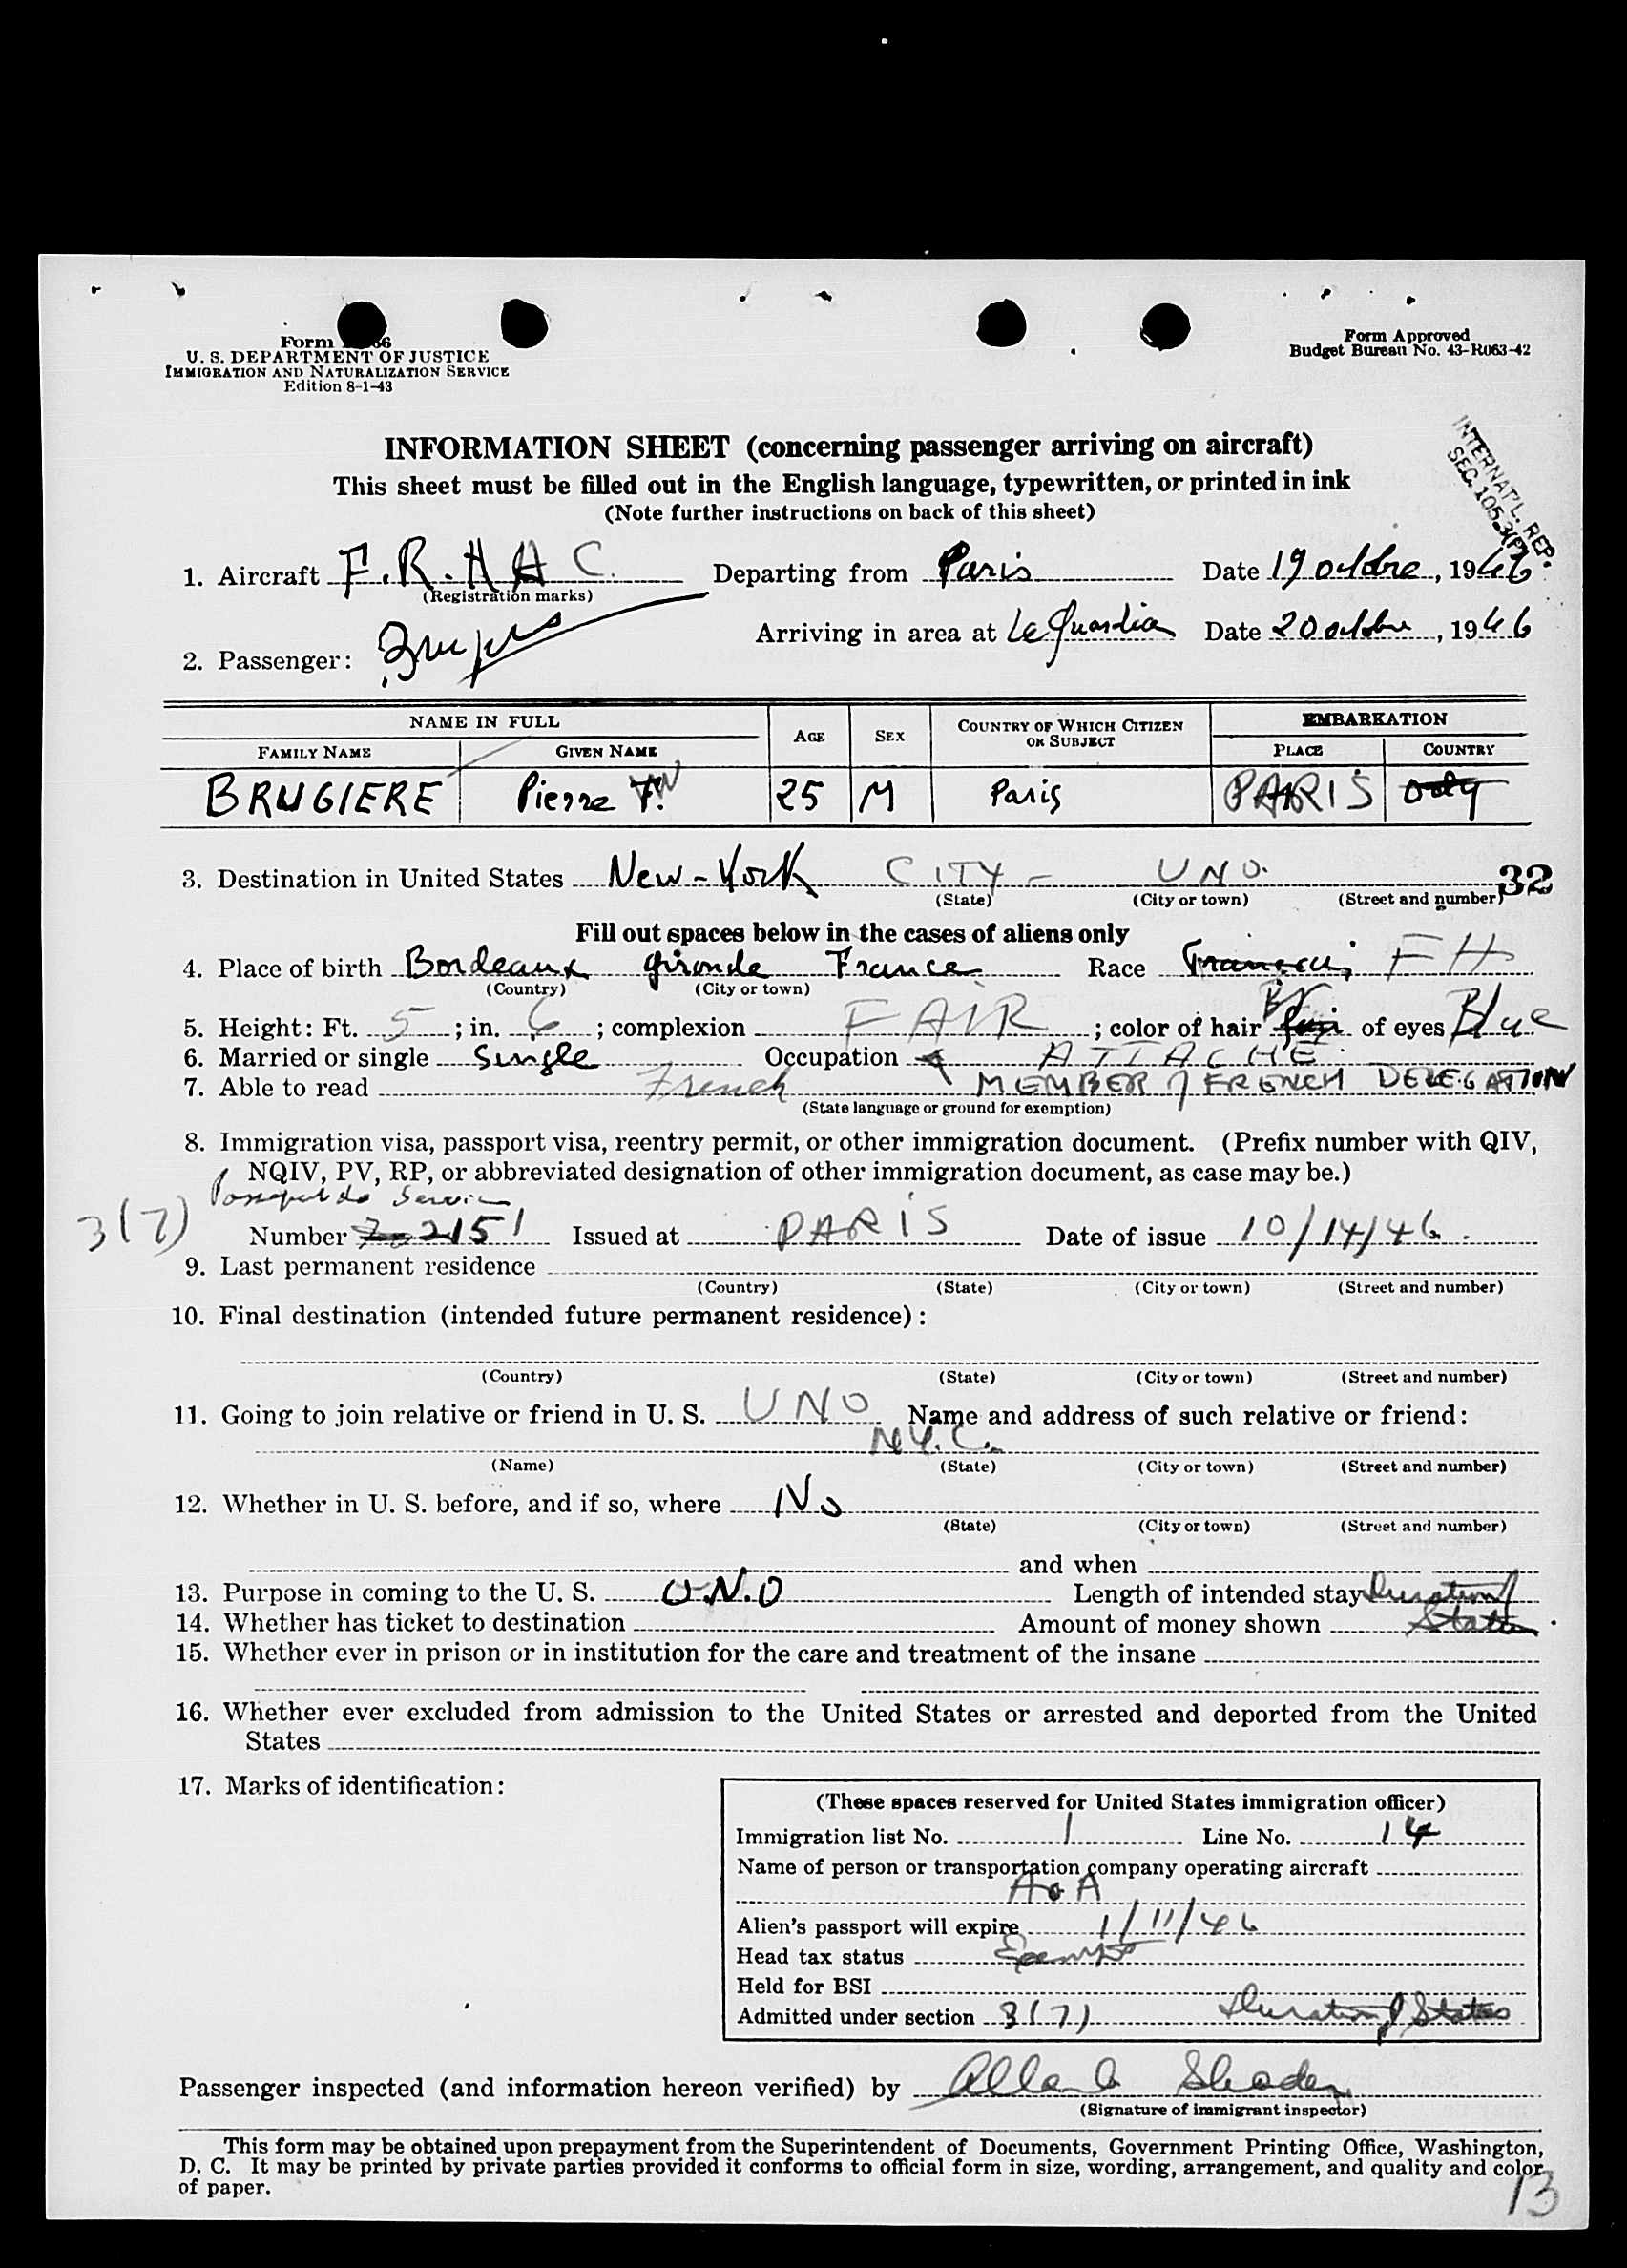 Form 66
U. S. DEPARTMENT OF JUSTICE
IMMIGRATION AND NATURALIZATION SERVICE
Edition 8-1-43
Form Approved
Budget Bureau No. 43-R063-42
INTERNAT'L. REP.
SEC. 105.3(P)
INFORMATION SHEET (concerning passenger arriving on aircraft)
This sheet must be filled out in the English language, typewritten, or printed in ink
(Note further instructions on back of this sheet)
1. Aircraft F.R.H A C. Departing from Paris Date 19 octobre, 1946
(Registration marks)
Arriving in area at La Guardia Date 20 octobre, 1946
2. Passenger:
NAME IN FULL AGE SEX COUNTRY OF WHICH CITIZEN OR SUBJECT EMBARKATION
FAMILY NAME GIVEN NAME PLACE COUNTRY
BRUGIERE Pierre 25 M Paris PARIS
3. Destination in United States New-York CITY - UNO. 32
(State) (City or town) (Street and number)
Fill out spaces below in the cases of aliens only
4. Place of birth Bordeaux gironde France Race FH
(Country) (City or town)
5. Height: Ft. 5; in. 6; complexion FAIR; color of hair Br of eyes Blue
6. Married or single Single Occupation ATTACHE
7. Able to read French MEMBER of FRENCH DELEGATION
(State language or ground for exemption)
8. Immigration visa, passport visa, reentry permit, or other immigration document. (Prefix number with QIV,
NQIV, PV, RP, or abbreviated designation of other immigration document, as case may be.)
3(7) Number 2151 Issued at PARIS Date of issue 10/14/46.
9. Last permanent residence
(Country) (State) (City or town) (Street and number)
10. Final destination (intended future permanent residence):
(Country) (State) (City or town) (Street and number)
11. Going to join relative or friend in U. S. UNO Name and address of such relative or friend:
N.Y.C.
(Name) (State) (City or town) (Street and number)
12. Whether in U. S. before, and if so, where No
(State) (City or town) (Street and number)
and when
13. Purpose in coming to the U. S. U.N.O Length of intended stay Duration of
14. Whether has ticket to destination Amount of money shown Status
15. Whether ever in prison or in institution for the care and treatment of the insane
16. Whether ever excluded from admission to the United States or arrested and deported from the United
States
17. Marks of identification:
(These spaces reserved for United States immigration officer)
Immigration list No. 1 Line No. 14
Name of person or transportation company operating aircraft
AoA
Alien's passport will expire 1/11/46
Head tax status Exempt
Held for BSI
Admitted under section 3(7) Duration of Status
Passenger inspected (and information hereon verified) by
(Signature of immigrant inspector)
This form may be obtained upon prepayment from the Superintendent of Documents, Government Printing Office, Washington,
D. C. It may be printed by private parties provided it conforms to official form in size, wording, arrangement, and quality and color
of paper.
13